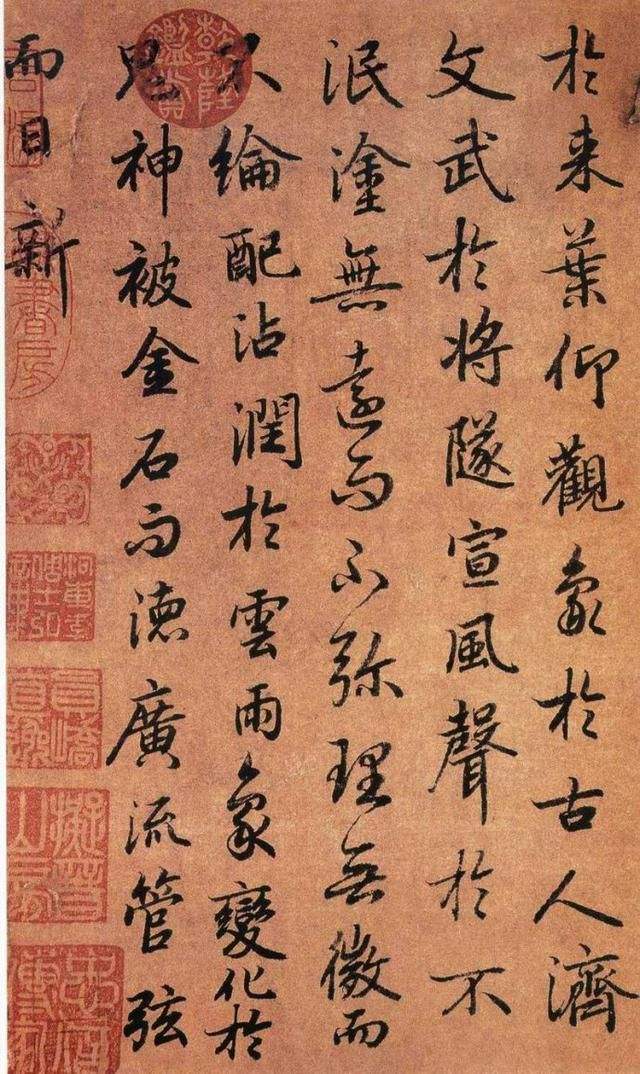 於来葉仰觀象於古人濟
文武於将隧宣風聲於不
泯塗無遠而不弥理無微而
不綸配沾潤於雲雨象變化於
鬼神被金石而德廣流管弦
而日新
乾隆鑑賞